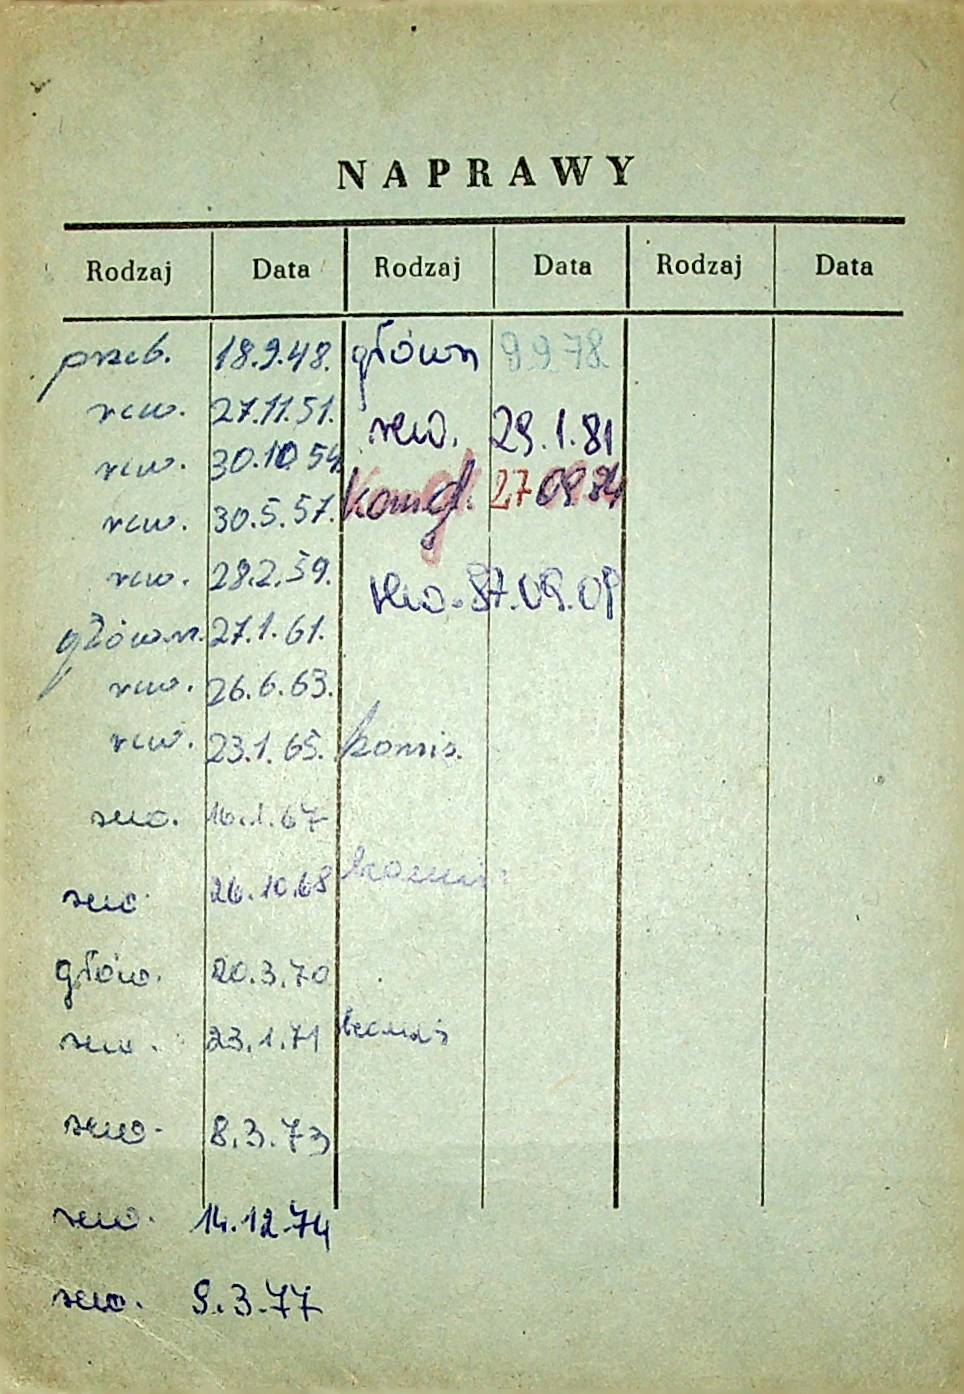 NAPRAWY
Rodzaj Data Rodzaj Data Rodzaj Data
przeb. 18.9.48. główn 9.9.78
rew. 27.11.51. rew. 29.1.81
rew. 30.10.54
rew. 30.5.57. Kom gł. 27 09 84
rew. 28.2.59. rew. 87.09.09
główn. 27.1.61.
rew. 26.6.63.
rew. 23.1.65. komis.
rew. 16.1.67
rew. 26.10.68 komis
głów. 20.3.70
rew. 23.1.71 komis
rew. 8.3.73
rew. 14.12.74
rew. 9.3.77